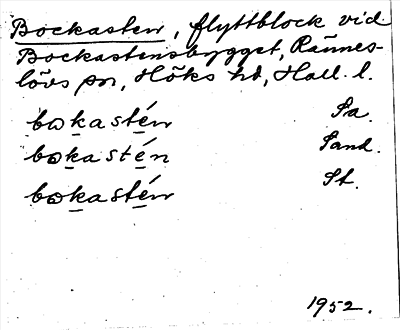 Bockasten, flyttblock vid
Bockastensbygget, Rännes-
lövs sn, Höks hd, Hall. l.
bωkastén Sa.
bωkastén Sand.
bωkastén St.
1952.